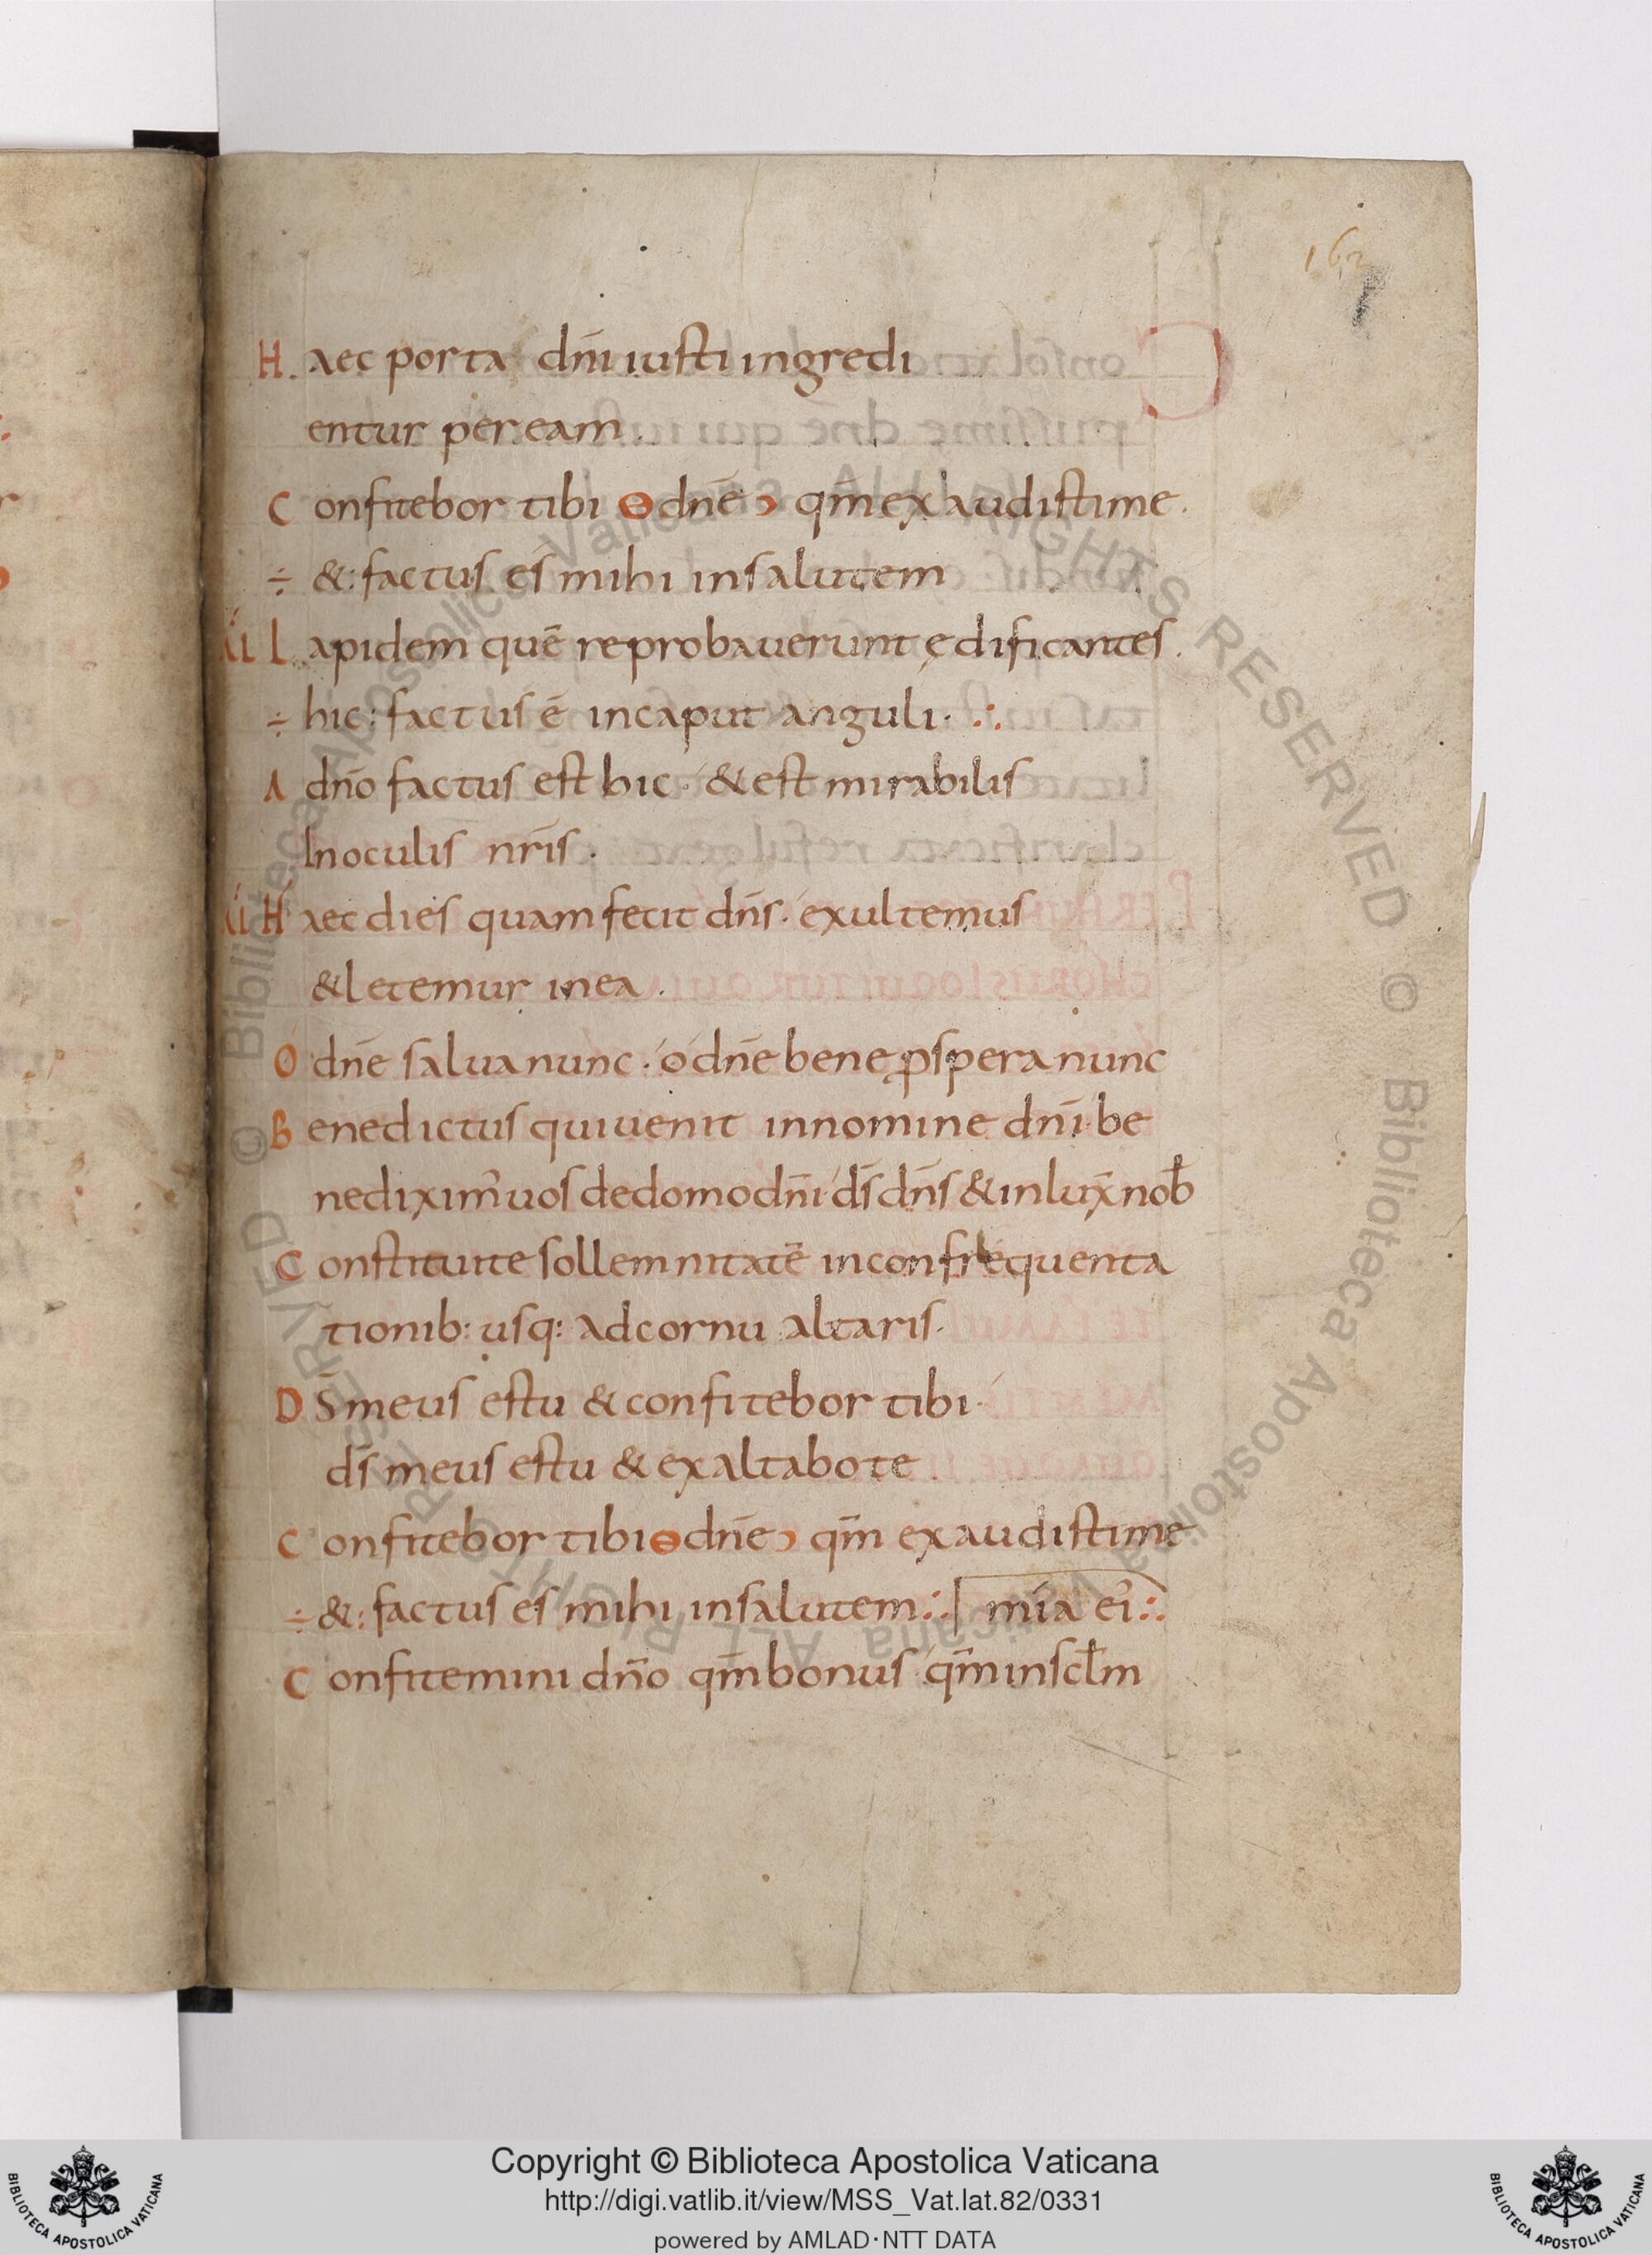 162
H aec porta dn̄i iusti ingredi
entur per eam.
C onfitebor tibi ɵ dnē ɔ qm̄ exaudisti me.
÷ &: factus es mihi in salutem
L apidem quē reprobauerunt ędificantes.
÷ hic: factus ē in caput anguli ·:.
A dn̄o factus est hic · & est mirabilis
In oculis nr̄is.
H aec dies quam fecit dn̄s · exultemus
& letemur in ea.
O dnē salua nunc · o dnē bene ꝓspera nunc
B enedictus qui uenit in nomine dn̄i · be
nediximꝰ uos de domo dn̄i · ds̄ dn̄s & inlux̄ nob̄
C onstituite sollemnitatē in confrequenta
tionib: usq: ad cornu altaris.
D S̄ meus es tu & confitebor tibi ·
ds̄ meus es tu & exaltabo te.
C onfitebor tibi ɵ dnē ɔ qm̄ exaudisti me
÷ &: factus es mihi in salutem:. | mīa eiꝰ:.
C onfitemini dn̄o qm̄ bonus qm̄ in scl̄m
Copyright © Biblioteca Apostolica Vaticana
http://digi.vatlib.it/view/MSS_Vat.lat.82/0331
powered by AMLAD·NTT DATA
BIBLIOTECA APOSTOLICA VATICANA
BIBLIOTECA APOSTOLICA VATICANA